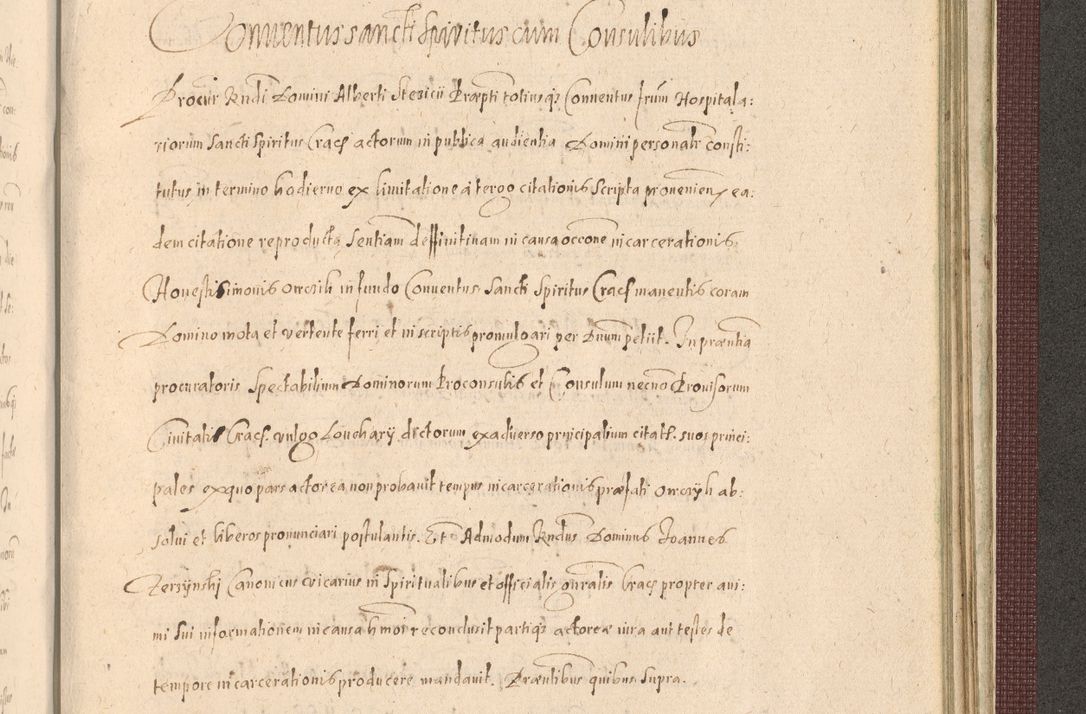 Conventus sancti Spiritus cum Consulibus
Procur Rndi Domini Alberti Stezicii Præpti totiusq3 Conventus frum Hospitala:
riorum Sancti Spiritus Crac. actorum in publica audientia Domini personalr consti:
tutus, in termino hodierno ex limitatione a tergo citationis scripta provenien. ea:
dem citatione reproducta, Sentiam deffinitivam in causa occone incarcerationis
Honesti Simonis Orczih in fundo Conventus Sancti Spiritus Crac manentis coram
Domino mota et vertente ferri et in scriptis promulgari per Dnum petiit. In præntia
procuratoris Spectabilium Dominorum Proconsulis et Consulum necno Provisorum
Civitatis Crac. vulgo Louchary dictorum ex adverso principalium citatt. suos princi:
pales ex quo pars actorea non probavit tempus incarcerationis præfati Orczyh ab:
solvi et liberos pronunciari postulantis. Et Admodum Rndus Dominus Joannes
Zerzynski Canonicus vicarius in Spiritualibus et officialis gnralis Crac propter ani:
mi sui informationem in causa hmoi reconclusit partiq3 actoreæ iura aut testes de
tempore incarcerationis producere mandavit. Præntibus quibus supra.